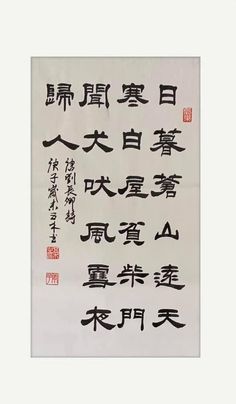 日暮蒼山遠天
寒白屋貧柴門
聞犬吠風雪夜
歸人
劉長卿詩
庚子歲末